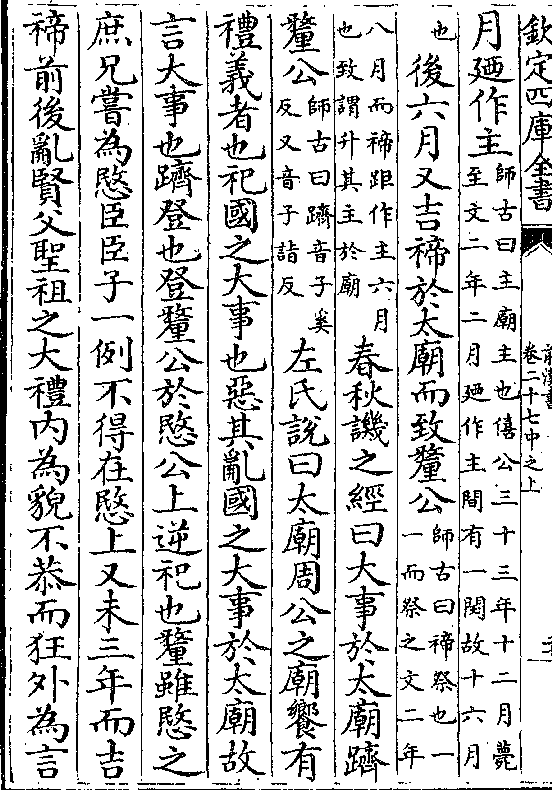 欽定四庫全書
卷二十七中之上
月廼作主
師古曰主廟主也僖公三十三年十二月薨
至文二年二月廼作主間有一閏故十六月
也
後六月又吉禘於太廟而致釐公
師古曰禘祭也一
一而祭之文二年
八月而禘距作主六月
也致謂升其主於廟
春秋譏之經曰大事於太廟躋
釐公
師古曰躋音子奚
反又音子詣反
左氏說曰太廟周公之廟饗有
禮義者也祀國之大事也惡其亂國之大事於太廟故
言大事也躋登也登釐公於愍公上逆祀也釐雖愍之
庶兄嘗為愍臣臣子一例不得在愍上又未三年而吉
禘前後亂賢父聖祖之大禮内為貌不恭而狂外為言